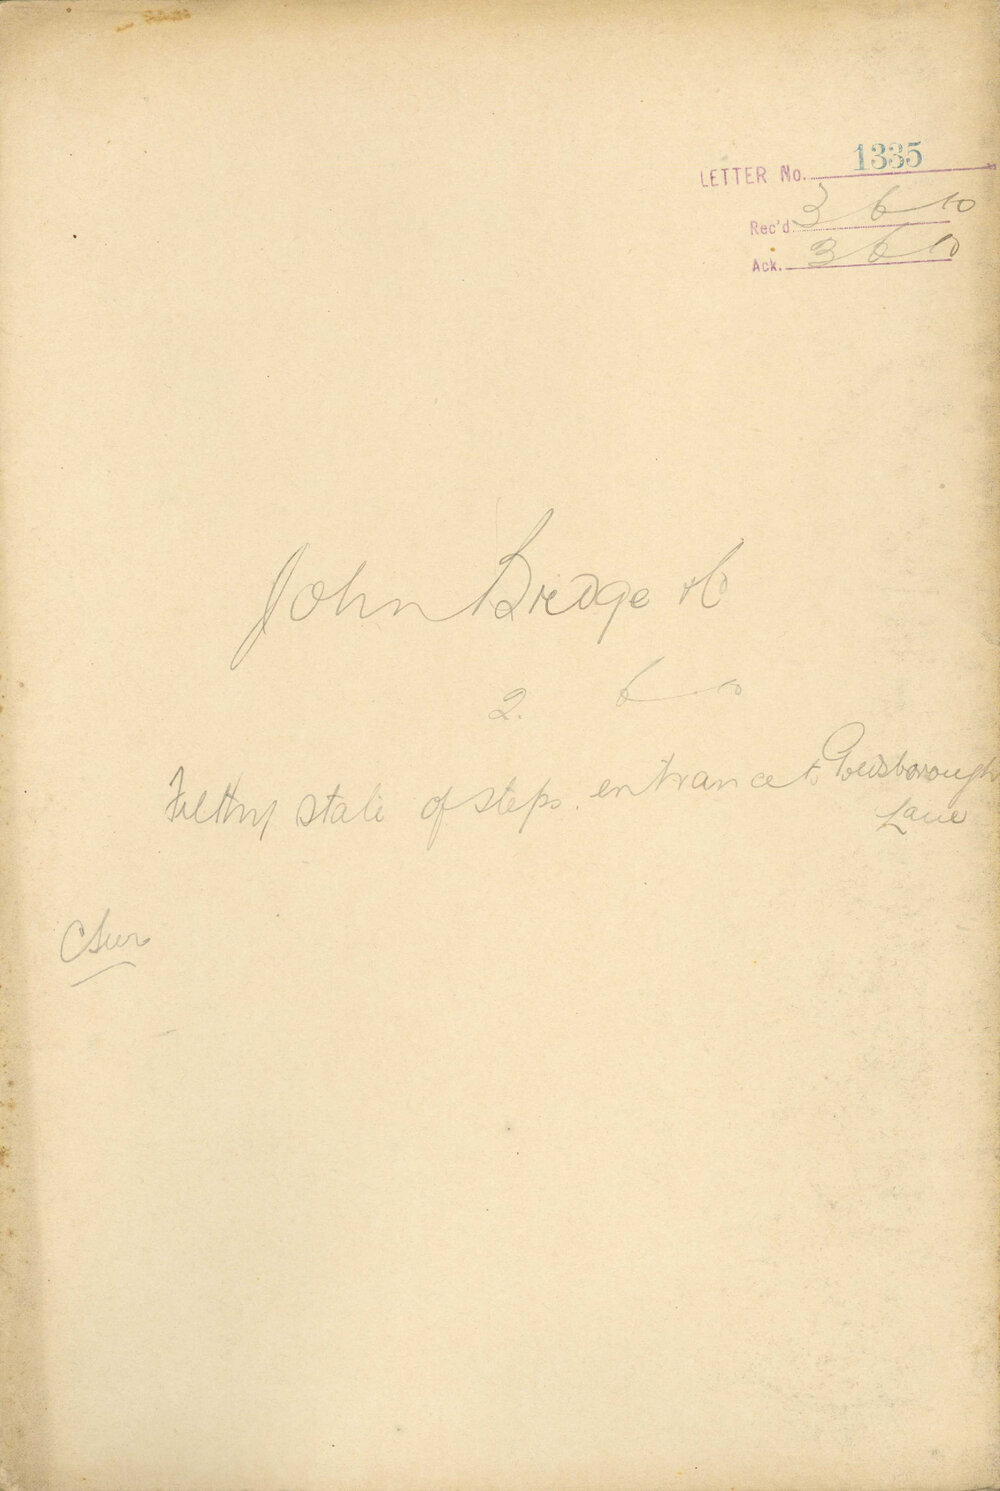 LETTER No. 1335
Rec'd. 3 6 10
Ack. 3 6 10
John Bridge & Co
2. 6 10
Filthy state of steps. entrance to Goldsborough
Lane
C Sur